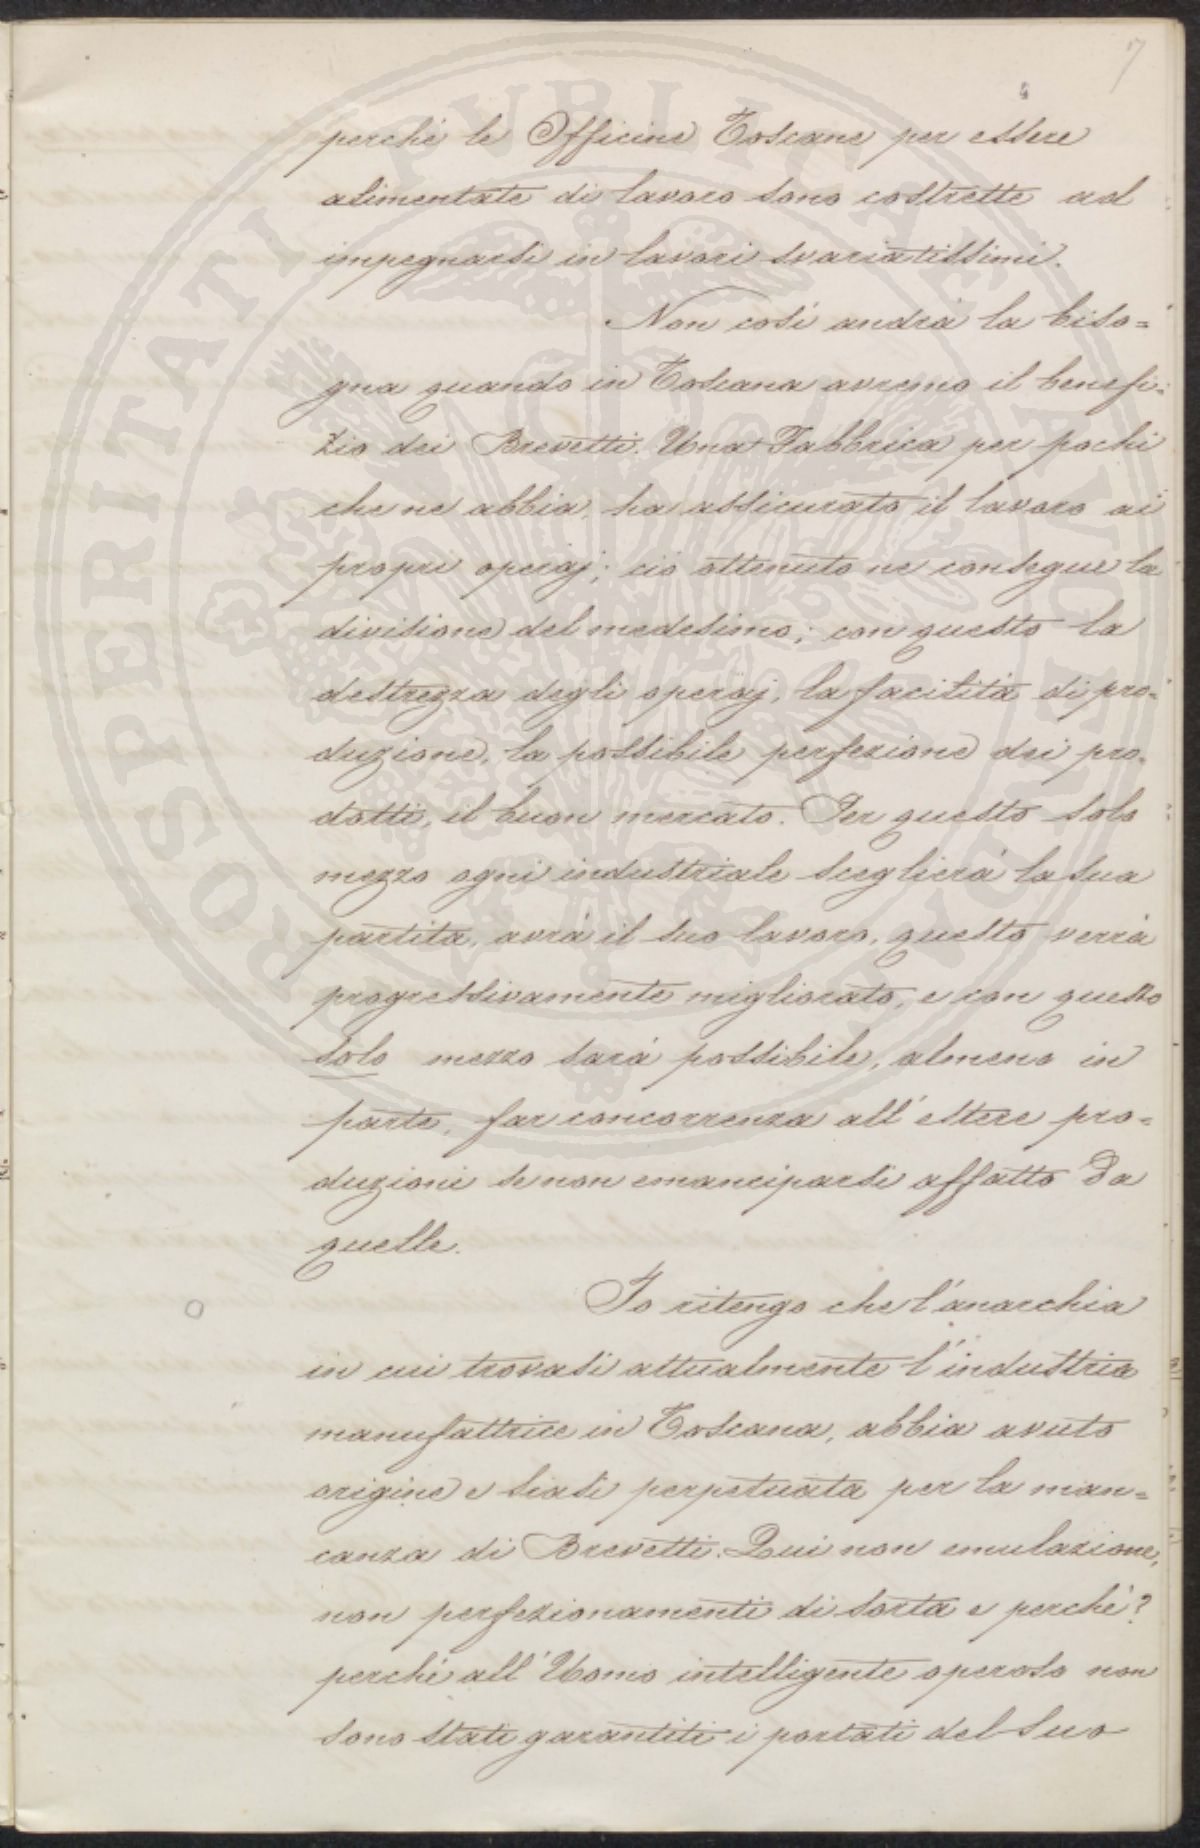 7
perché le Officine Toscane per essere
alimentate di lavoro sono costrette ad
impegnarsi in lavori svariatissimi.
Non così andrà la biso=
gna quando in Toscana avremo il benefi=
zio dei Brevetti. Una Fabbrica per pochi
che ne abbia, ha assicurato il lavoro ai
propri operaj; ciò ottenuto ne consegue la
divisione del medesimo; con questo la
destrezza degli operaj, la facilità di pro=
duzione, la possibile perfezione dei pro=
dotti, il buon mercato. Per questo solo
mezzo ogni industriale sceglierà la sua
partita, avrà il suo lavoro, questo verrà
progressivamente migliorato, e con questo
solo mezzo sarà possibile, almeno in
parte, far concorrenza all'estere pro=
duzioni se non emanciparsi affatto da
quelle.
Io ritengo che l'anarchia
in cui trovasi attualmente l'industria
manufattrice in Toscana, abbia avuto
origine e siasi perpetuata per la man=
canza di Brevetti. Qui non emulazione,
non perfezionamenti di sorta e perché?
perché all'Uomo intelligente operoso non
sono stati garantiti i portati del suo
PROSPERITATI PVBLICAE AVGENDAE